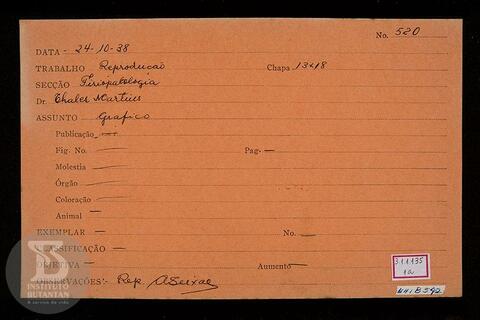 No. 520
DATA - 24-10-38
TRABALHO Reproducao Chapa 13x18
SECÇÃO Fisiopatologia
Dr. Thales Martins
ASSUNTO - Grafico
Publicação
Fig. No. — Pag -
Molestia —
Órgão —
Coloração —
Animal —
EXEMPLAR — No. —
CLASSIFICAÇÃO —
OBJETIVA — Aumento —
OBSERVAÇÕES - Rep. A Seixas
311135
1a
INSTITUTO
BUTANTAN
A serviço da vida